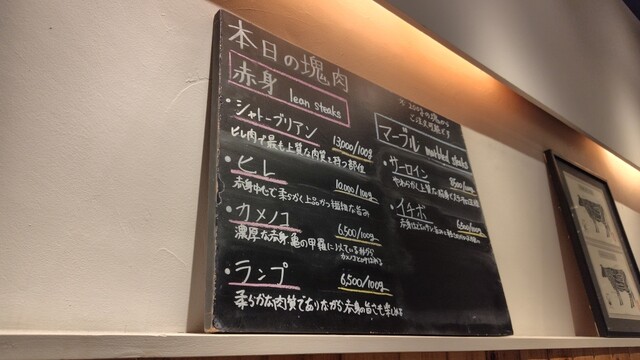 本日の塊肉
赤身 lean steaks
・シャトーブリアン 13,000/100g
ヒレ肉で最も上質な肉質を持つ部位
・ヒレ 10,000/100g
赤身中心で柔らかく上品かつ繊細な旨み
・カメノコ 6,500/100g
濃厚な赤身、亀の甲羅に似ている形から
カメノコとよばれる
・ランプ 6,500/100g
柔らかな肉質でありながら赤身の旨さも楽しめる
※200gの塊から
ご注文可能です
マーブル marbled steaks
・サーロイン 8500/100g
やわらかく上質な
・イチボ 6,500/100g